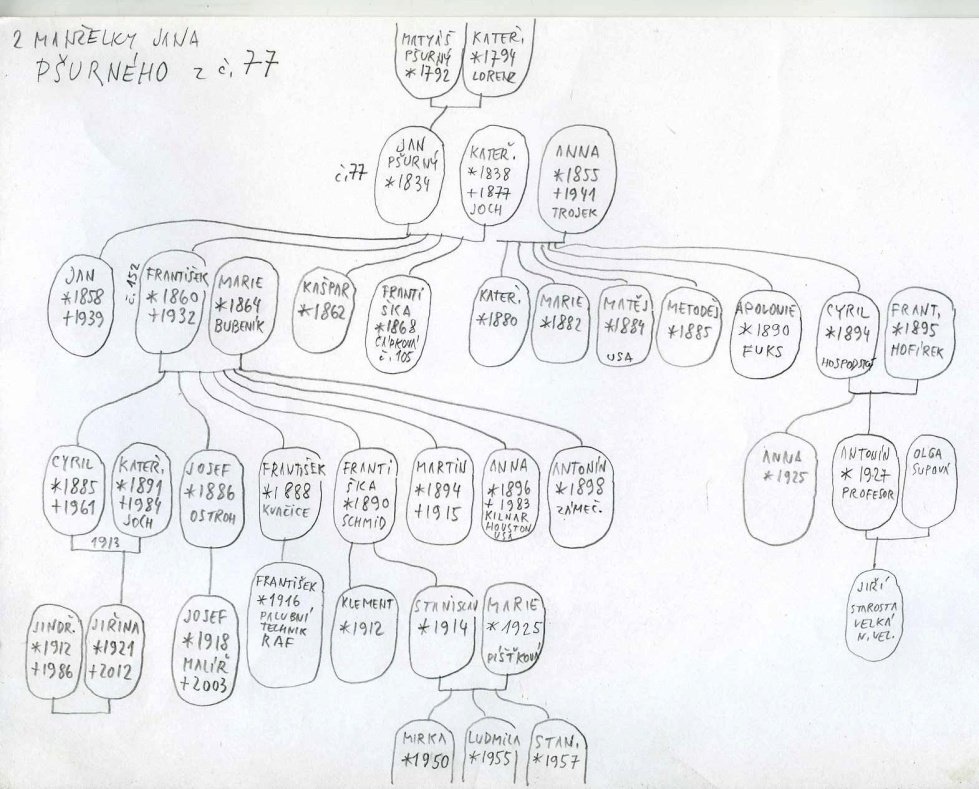 2 MANŽELKY JANA
PŠURNÉHO z č. 77
MATYÁŠ
PŠURNÝ
*1792
KATEŘ.
*1794
LORENZ
č. 77
JAN
PŠURNÝ
*1834
KATEŘ.
*1838
+1877
JOCH
ANNA
*1855
+1941
TROJEK
JAN
*1858
+1939
č. 152
FRANTIŠEK
*1860
+1932
MARIE
*1864
BUBENIK
KAŠPAR
*1862
FRANTI
ŠKA
*1868
ČÁPKOVÁ
č. 105
KATEŘ.
*1880
MARIE
*1882
MATĚJ
*1884
USA
METODĚJ
*1885
APOLONIE
*1890
FUKS
CYRIL
*1894
FRANT.
*1895
HOFÍREK
CYRIL
*1885
+1961
KATEŘ.
*1891
+1984
JOCH
1913
JOSEF
*1886
OSTROH
FRANTIŠEK
*1888
KVAČICE
FRANTI
ŠKA
*1890
SCHMID
MARTIN
*1894
+1915
ANNA
*1896
+1983
KILNAR
HOUSTON
USA
ANTONÍN
*1898
ZÁMEČ.
ANNA
*1925
ANTONÍN
*1927
PROFESOR
OLGA
ŠUPOVÁ
JINDŘ.
*1912
+1986
JIŘINA
*1921
+2012
JOSEF
*1918
MALÍŘ
+2003
FRANTIŠEK
*1916
PALUBNÍ
TECHNIK
RAF
KLEMENT
*1912
STANISLAV
*1914
MARIE
*1925
PÍŠŤKOVÁ
JIŘÍ
STAROSTA
VELKÁ
N. VEL.
MIRKA
*1950
LUDMILA
*1955
STAN.
*1957